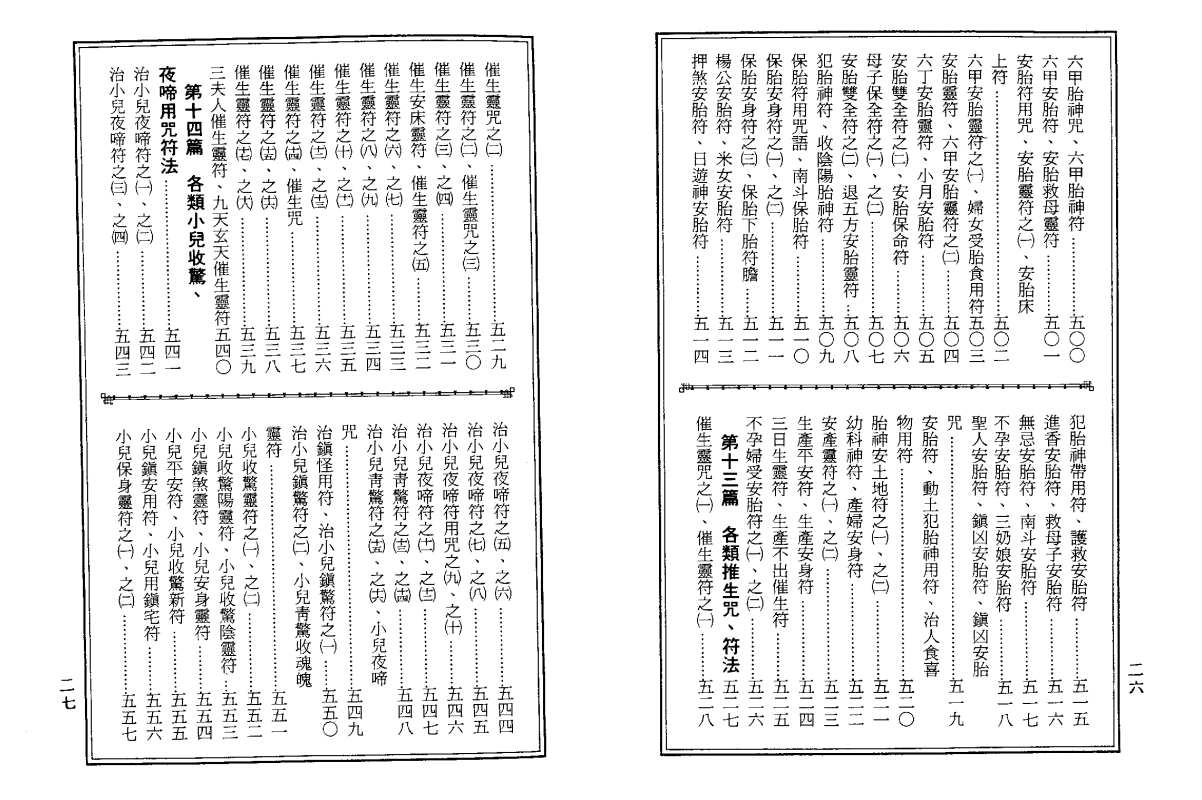 六甲胎神咒、六甲胎神符…………五〇〇
六甲安胎符、安胎救母靈符…………五〇一
安胎符用咒、安胎靈符之㈠、安胎床
上符…………五〇二
六甲安胎靈符之㈠、婦女受胎食用符五〇三
安胎靈符、六甲安胎靈符之㈡…………五〇四
六丁安胎靈符、小月安胎符…………五〇五
安胎雙全符之㈡、安胎保命符…………五〇六
母子保全符之㈠、之㈡…………五〇七
安胎雙全符之㈡、退五方安胎靈符…五〇八
犯胎神符、收陰陽胎神符…………五〇九
保胎符用咒語、南斗保胎符…………五一〇
保胎安身符之㈠、之㈡…………五一一
保胎安身符之㈢、保胎下胎符膽……五一二
楊公安胎符、米女安胎符…………五一三
押煞安胎符、日遊神安胎符…………五一四
犯胎神帶用符、護救安胎符…………五一五
進香安胎符、救母子安胎符…………五一六
無忌安胎符、南斗安胎符…………五一七
不孕安胎符、三奶娘安胎符…………五一八
聖人安胎符、鎭凶安胎符、鎭凶安胎
咒…………五一九
安胎符、動土犯胎神用符、治人食喜
物用符…………五二〇
胎神安土地符之㈠、之㈡…………五二一
幼科神符、產婦安身符…………五二二
安產靈符之㈠、之㈡…………五二三
生產平安符、生產安身符…………五二四
三日生靈符、生產不出催生符…………五二五
不孕婦受安胎符之㈠、之㈡…………五二六
第十三篇　各類推生咒、符法五二七
催生靈咒之㈠、催生靈符之㈠………五二八
二六
催生靈咒之㈡…………五二九
催生靈符之㈡、催生靈咒之㈢………五三〇
催生靈符之㈢、之㈣…………五三一
催生安床靈符、催生靈符之㈤………五三二
催生靈符之㈥、之㈦…………五三三
催生靈符之㈧、之㈨…………五三四
催生靈符之㈩、之⑾…………五三五
催生靈符之⑿、之⒀…………五三六
催生靈符之⒁、催生咒…………五三七
催生靈符之⒂、之⒃…………五三八
催生靈符之⒄、之⒅…………五三九
三夫人催生靈符、九天玄天催生靈符五四〇
第十四篇　各類小兒收驚、
夜啼用咒符法…………五四一
治小兒夜啼符之㈠、之㈡…………五四二
治小兒夜啼符之㈢、之㈣…………五四三
治小兒夜啼符之㈤、之㈥…………五四四
治小兒夜啼符之㈦、之㈧…………五四五
治小兒夜啼符用咒之㈨、之㈩………五四六
治小兒夜啼符之⑾、之⑿…………五四七
治小兒靑驚符之⒀、之⒁…………五四八
治小兒靑驚符之⒂、之⒃、小兒夜啼
咒…………五四九
治鎭怪用符、治小兒鎭驚符之㈠……五五〇
治小兒鎭驚符之㈡、小兒靑驚收魂魄
靈符…………五五一
小兒收驚靈符之㈠、之㈡…………五五二
小兒收驚陽靈符、小兒收驚陰靈符…五五三
小兒鎭煞靈符、小兒安身靈符………五五四
小兒平安符、小兒收驚新符…………五五五
小兒鎭安用符、小兒用鎭宅符………五五六
小兒保身靈符之㈠、之㈡…………五五七
二七